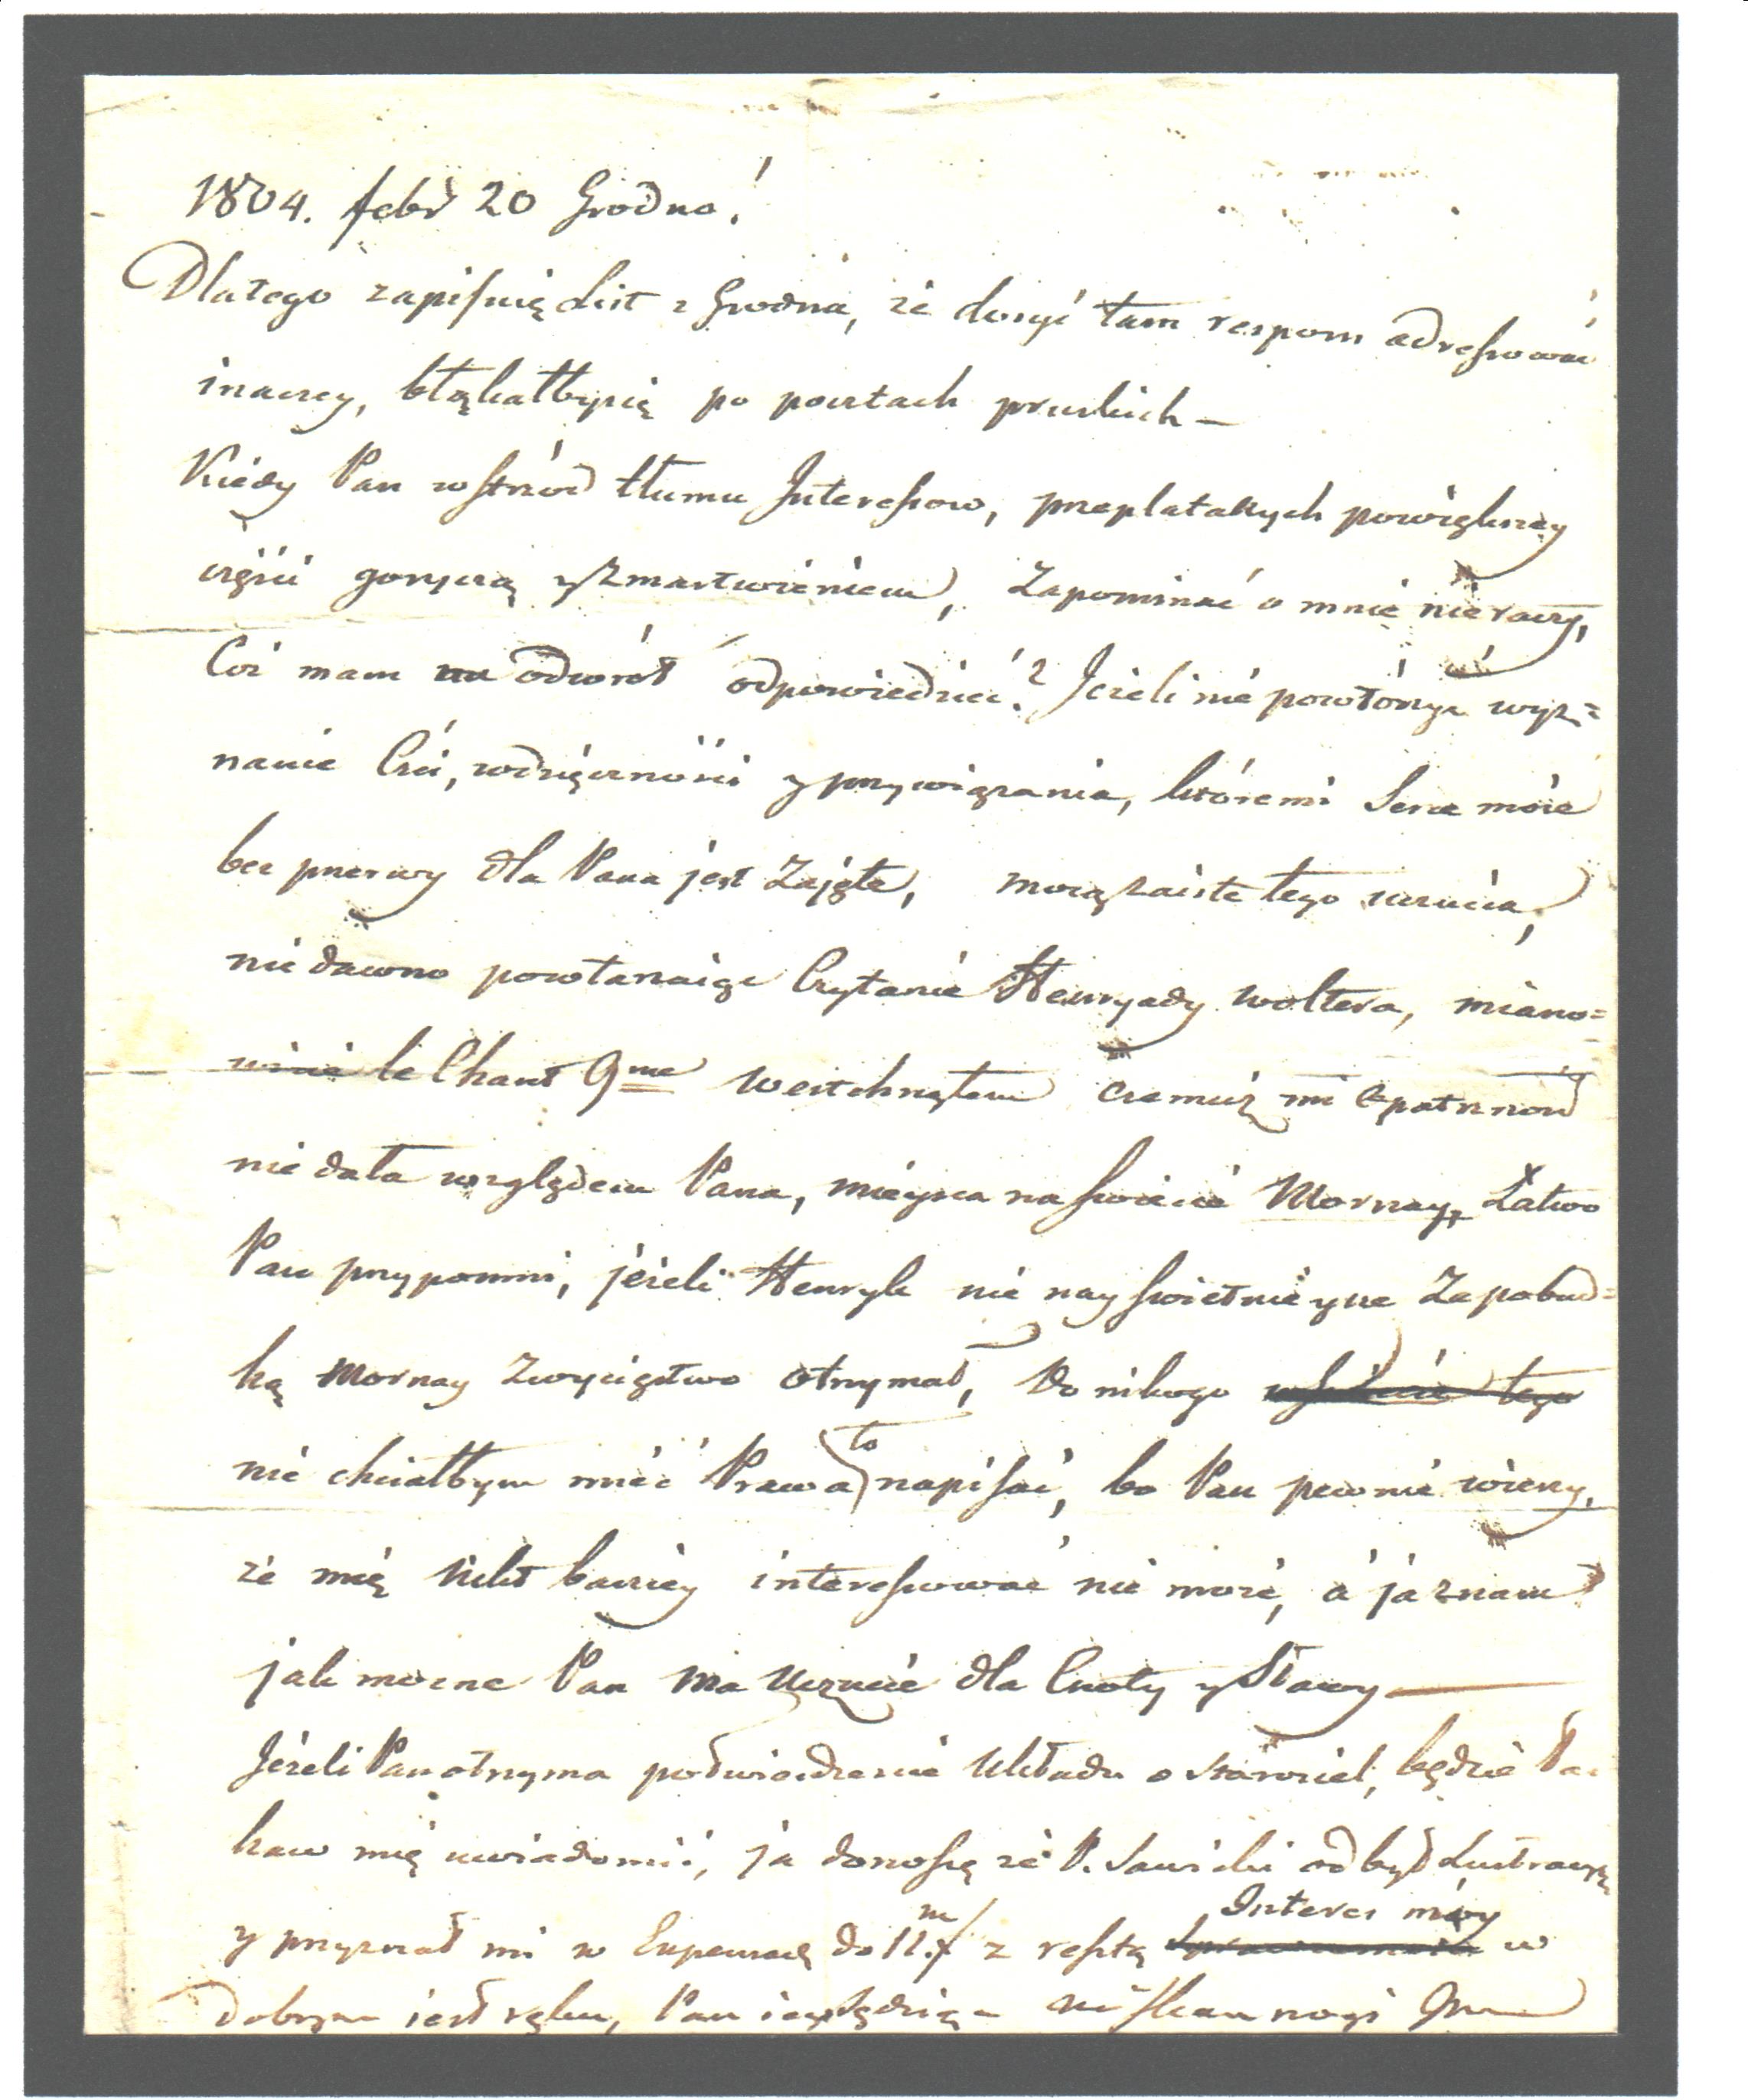 1804. febr 20 Grodno!
Dlatego zapisuię List z Grodna, że dosyć tam respons adressować
inaczey, błąkałbysię po pocztach pruskich —
Kiedy Pan wsrzód tłumu Interessow, przeplatanych powiększey
części goryczą y Zmartwieniem, Zapominać o mnie nieraczy,
Coż mam na odwrót odpowiedzieć? Jeżeli nie powtórzyć wyz=
nanie Czci, wdzięczności y przywiązania, któremi Serce moie
bez przerwy dla Pana jest Zajęte, mocą zaiste tego uczucia,
nie dawno powtarzaiąc Czytanie Henryady woltera, miano=
wicie le Chant 9me westchnąłem czemuż mi Opatrzność
nie dała względem Pana, mieysca na swiecie Mornay, Łatwo
Pan przypomni, jeżeli Henryk nie nayswietnieysze Za pobud=
ką Mornay Zwycięstwo otrzymał, Do nikogo
nie chciałbym mieć Prawa to napisać, bo Pan pewnie wierzy,
że mię Nikt barziey interessować nie może, a ja znam
jak mocne Pan ma Uczucie dla Cnoty y Sławy —
Jeżeli Pan otrzyma potwierdzenie Układu o będzie Ła=
kaw mię uwiadomić, ja donoszę że P. Sawicki odbył Lustracyą
y przyznał mi w do 11.m z resztą Interes móy w
dobrym jest ręku, Pan